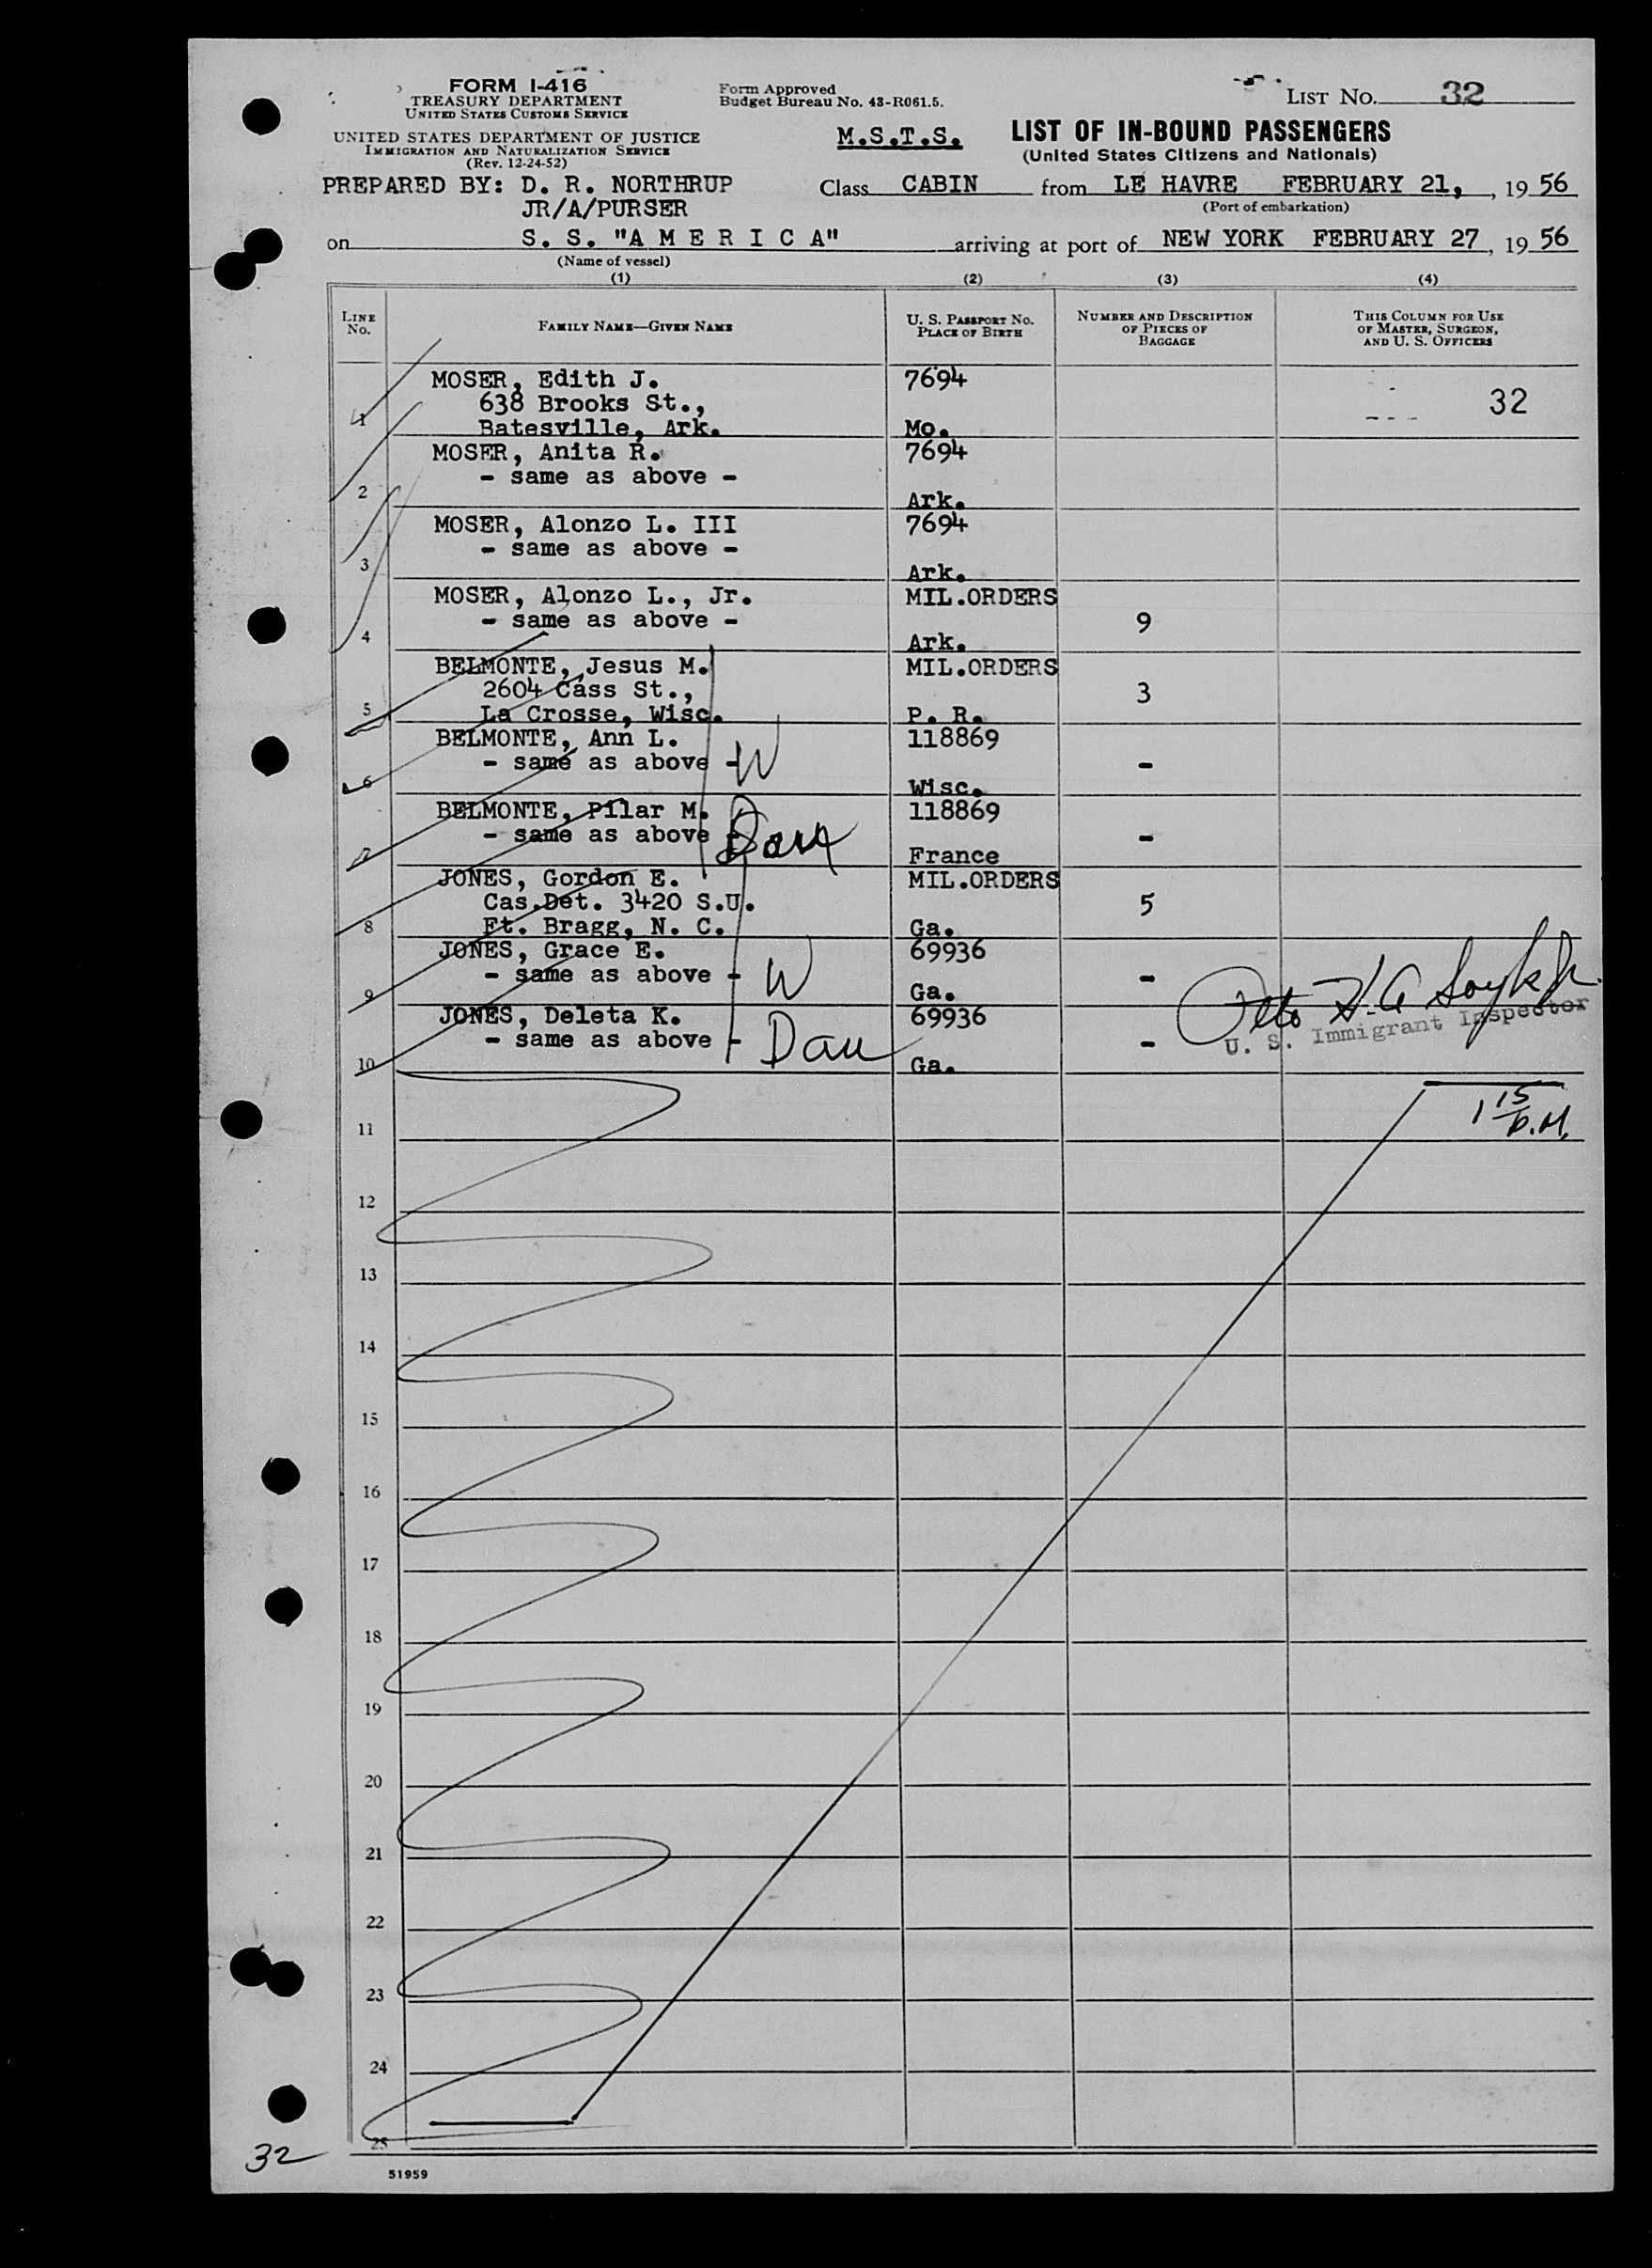 FORM I-416
TREASURY DEPARTMENT
UNITED STATES CUSTOMS SERVICE
UNITED STATES DEPARTMENT OF JUSTICE
IMMIGRATION AND NATURALIZATION SERVICE
(Rev. 12-24-52)
Form Approved
Budget Bureau No. 43-R061.5.
LIST NO. 32
M.S.T.S. LIST OF IN-BOUND PASSENGERS
(United States Citizens and Nationals)
PREPARED BY: D. R. NORTHRUP
JR/A/PURSER
Class CABIN from LE HAVRE FEBRUARY 21, , 19 56
(Port of embarkation)
on S. S. "A M E R I C A" arriving at port of NEW YORK FEBRUARY 27 , 19 56
(Name of vessel)
(1) (2) (3) (4)
LINE No. FAMILY NAME—GIVEN NAME U. S. PASSPORT NO. PLACE OF BIRTH NUMBER AND DESCRIPTION OF PIECES OF BAGGAGE THIS COLUMN FOR USE OF MASTER, SURGEON, AND U. S. OFFICERS
MOSER, Edith J. 7694
638 Brooks St., 32
1 Batesville, Ark. Mo.
MOSER, Anita R. 7694
- same as above -
2 Ark.
MOSER, Alonzo L. III 7694
- same as above -
3 Ark.
MOSER, Alonzo L., Jr. MIL.ORDERS
- same as above - 9
4 Ark.
BELMONTE, Jesus M. MIL.ORDERS
2604 Cass St., 3
5 La Crosse, Wisc. P. R.
BELMONTE, Ann L. 118869
- same as above - W -
6 Wisc.
BELMONTE, Pilar M. 118869
- same as above - -
7 France
JONES, Gordon E. MIL.ORDERS
Cas.Det. 3420 S.U. 5
8 Ft. Bragg, N. C. Ga.
JONES, Grace E. 69936
- same as above - W -
9 Ga.
JONES, Deleta K. 69936
- same as above - Dau -
U. S. Immigrant Inspector
10 Ga.
1 15 P.M.
11
12
13
14
15
16
17
18
19
20
21
22
23
24
25
32
51959